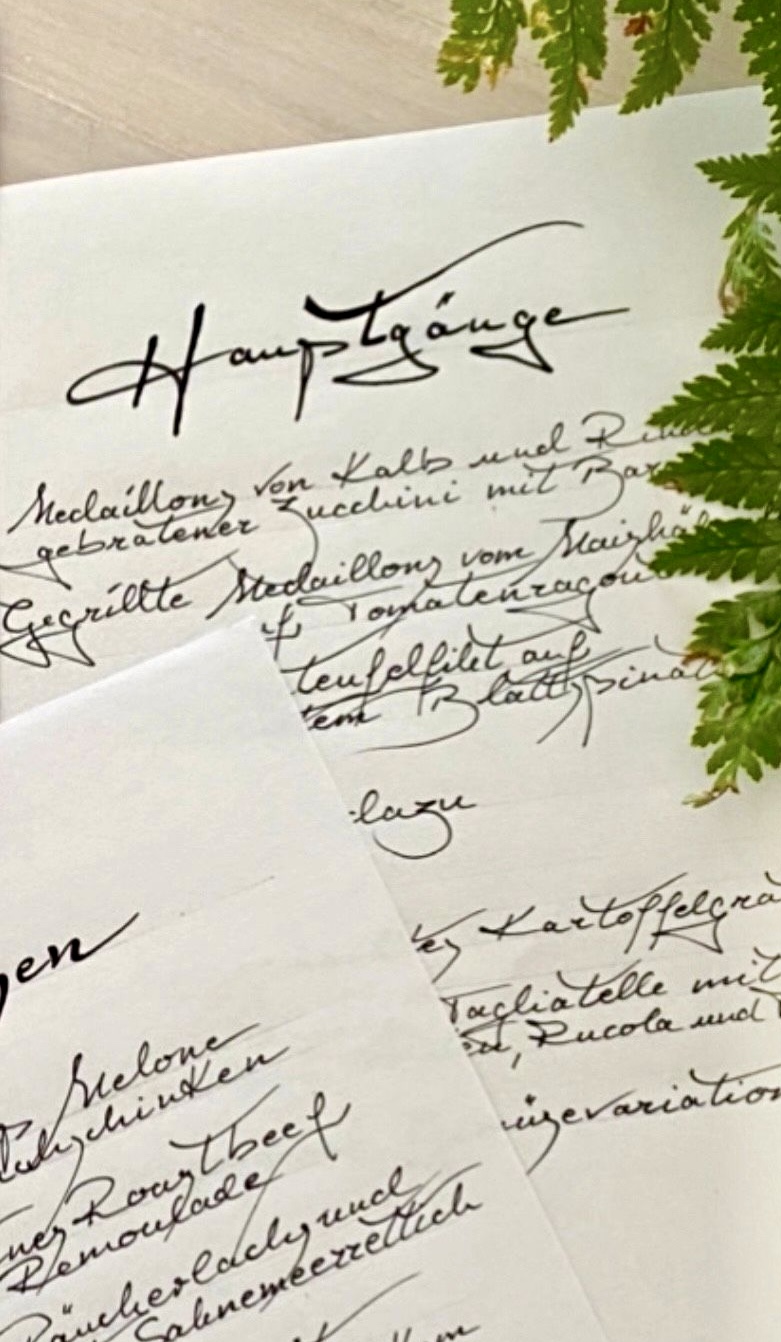 Hauptgänge
Medaillons von Kalb und
gebratener Zucchini mit
Gegrillte Medaillons vom
Tomatenragou
teufelfilet auf
Blattspinat
dazu
Kartoffelgra
Tagliatelle mit
Rucola und
variation
Melone
Roastbeef
Remoulade
Räucherlachs und
Sahnemeerrettich